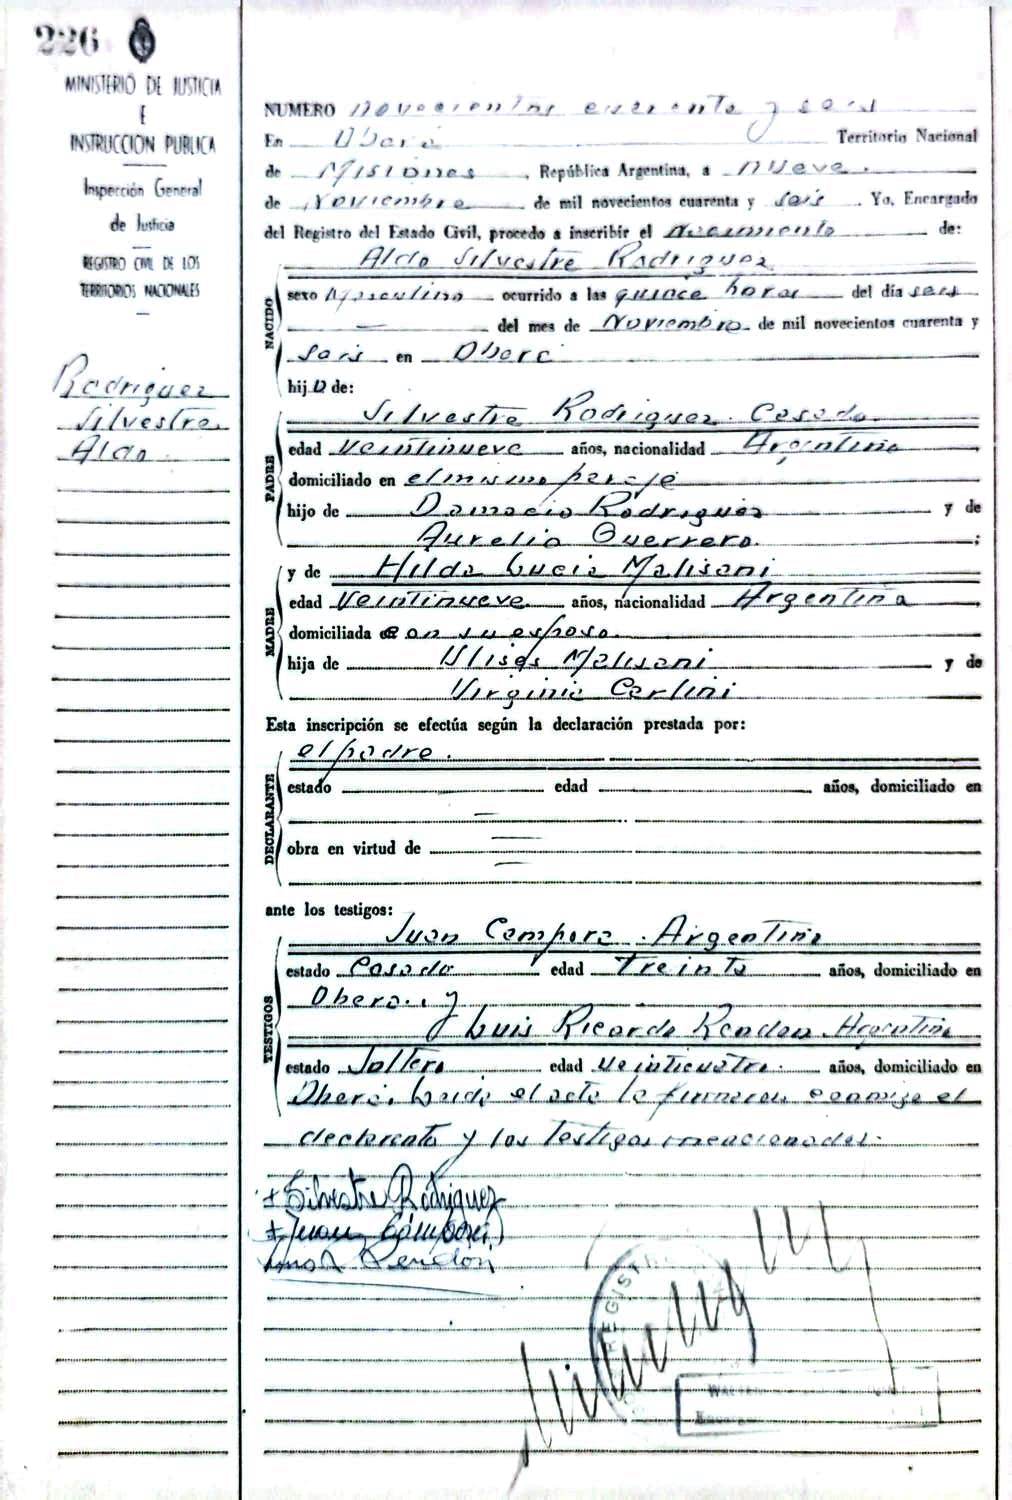 226
MINISTERIO DE JUSTICIA
E
INSTRUCCION PUBLICA
Inspección General
de Justicia
REGISTRO CIVIL DE LOS
TERRITORIOS NACIONALES
Rodriguez
Silvestre
Aldo
NUMERO novecientos cuarenta y seis
En Oberá Territorio Nacional
de Misiones, República Argentina, a nueve
de Noviembre de mil novecientos cuarenta y seis. Yo, Encargado
del Registro del Estado Civil, procedo a inscribir el Nacimiento de:
NACIDO
Aldo Silvestre Rodriguez
sexo Masculino ocurrido a las quince horas del día seis
del mes de Noviembre de mil novecientos cuarenta y
seis en Oberá
hijo de:
PADRE
Silvestre Rodriguez. Casado.
edad Veintinueve años, nacionalidad Argentino
domiciliado en el mismo paraje
hijo de Damacio Rodriguez y de
Aurelia Guerrero. ;
MADRE
y de Hilda Lucia Malisani
edad Veintinueve años, nacionalidad Argentina
domiciliada con su esposo.
hija de Ulises Malisani y de
Virginia Carlini
Esta inscripción se efectúa según la declaración prestada por:
DECLARANTE
el padre.
estado edad años, domiciliado en
obra en virtud de
ante los testigos:
TESTIGOS
Juan Campora. Argentino
estado Casado edad Treinta años, domiciliado en
Obera., y
Luis Ricardo Rendon Argentino
estado Soltero edad Veinticuatro. años, domiciliado en
Oberá. Leida el acta la firmaron conmigo el
declarante y los testigos mencionados.
Silvestre Rodriguez
Juan Cámpora
Luis R Rendón
REGISTR